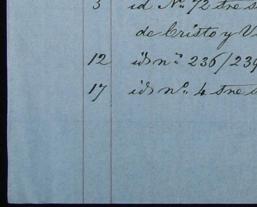 3 id Nº 72 tres
de Cristo y V
12 ids nº 236/239
17 ids nº 4 tres